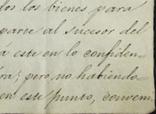 los los bienes para
parre al sucesor del
á este en lo confiden-
ra; pero, no habiendo
en este punto, conven